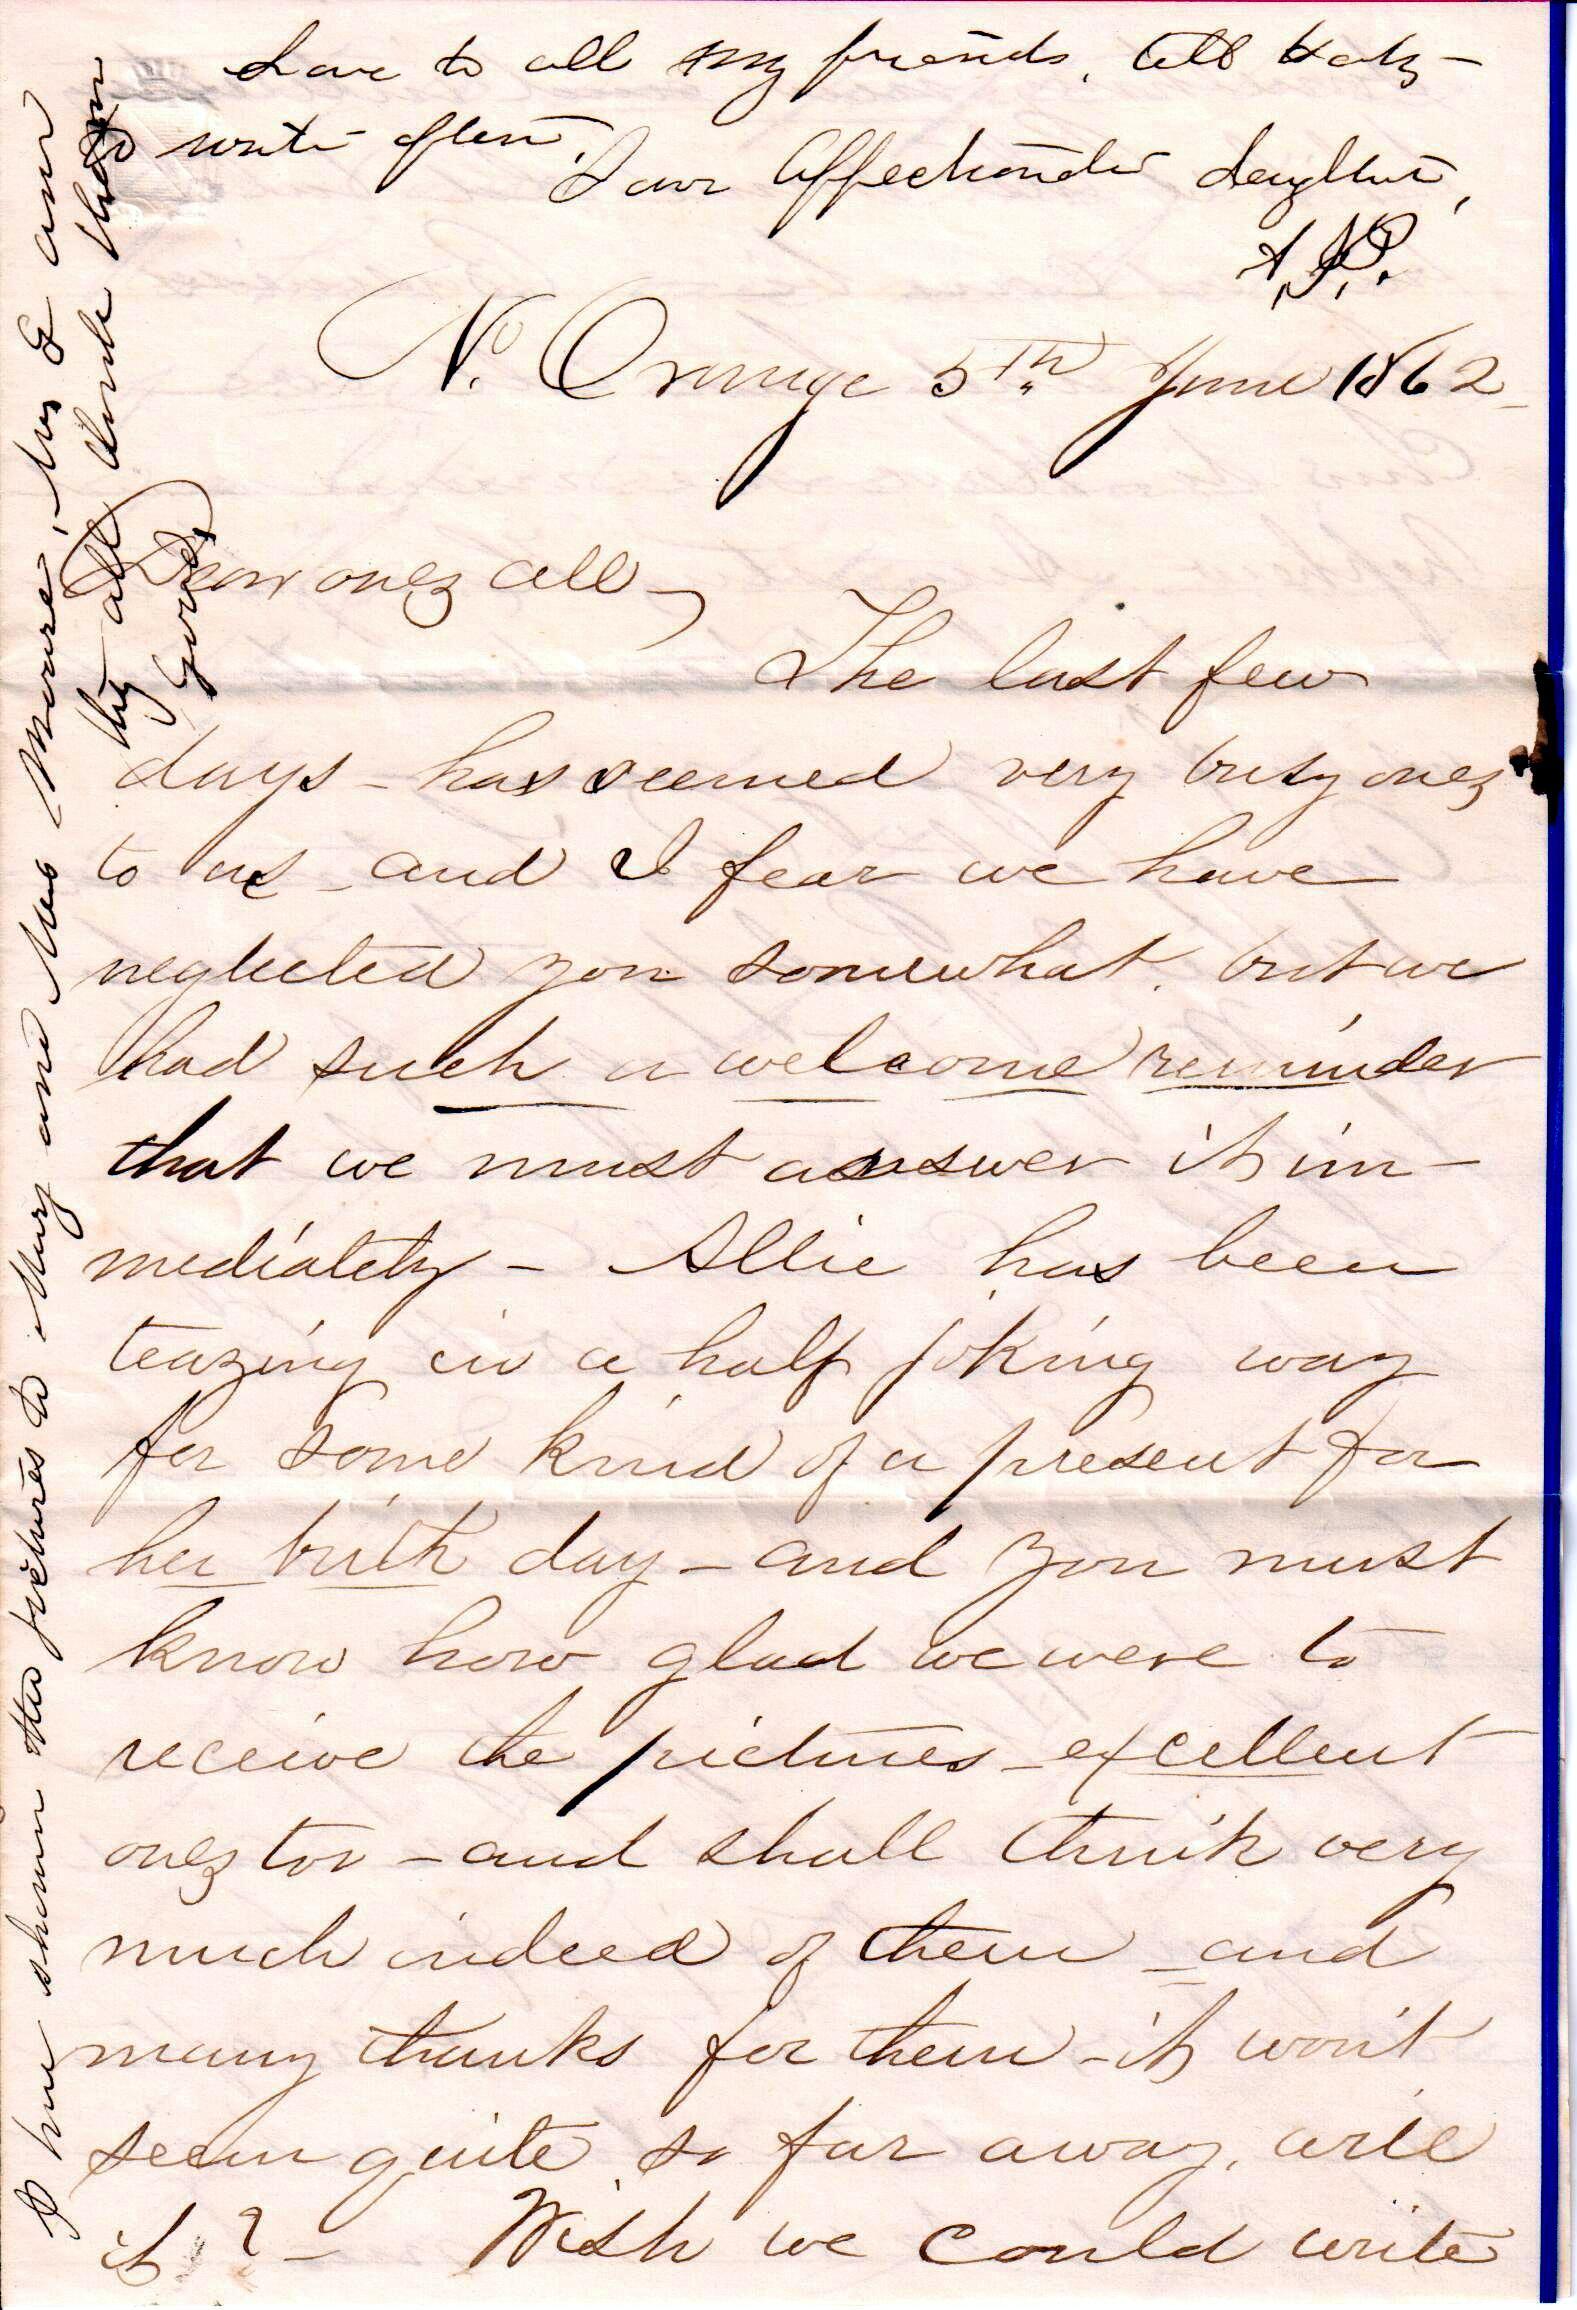 Love to all my friends. Tell Katy -
to write often.
Your Affectionate daughter,
A.K.P.
N. Orange 5th June 1862
Dear ones all -
The last few
days - has seemed very busy ones
to us - and I fear we have
neglected you somewhat. but we
had such a welcome reminder
that we must answer it im-
mediately - Allie has been
teazing in a half joking way
for some kind of a present for
her birth day - and you must
know how glad we were to
receive the pictures - excellent
ones too - and shall think very
much indeed of them - and
many thanks for them - it won't
seem quite so far away, will
it? - Wish we could write
I have shown the pictures to Mary and Mrs Mouse, Mrs G and
they all think them
good